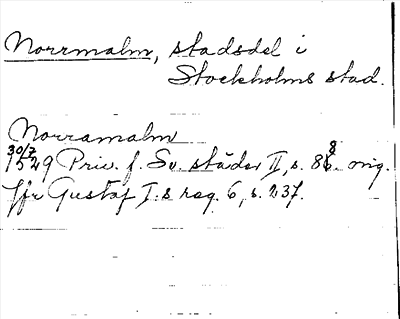 Norrmalm, stadsdel i
Stockholms stad.
Norramalm
30/7 1529 Priv. f. Sv. städer II, s. 88. orig.
Jfr Gustaf I:s reg. 6, s. 237.